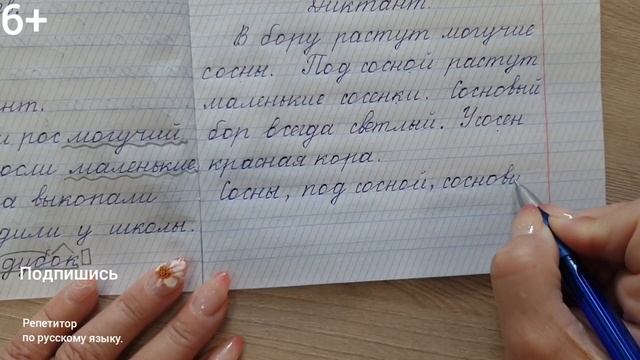 6+
Диктант.
В бору растут могучие
сосны. Под сосной растут
маленькие сосенки. Сосновый
бор всегда светлый. У сосен
красная кора.
Сосны, под сосной, соснов
нт.
и рос могучий
осли маленькие
а выкопали
дили у школы.
дубок
Подпишись
Репетитор
по русскому языку.